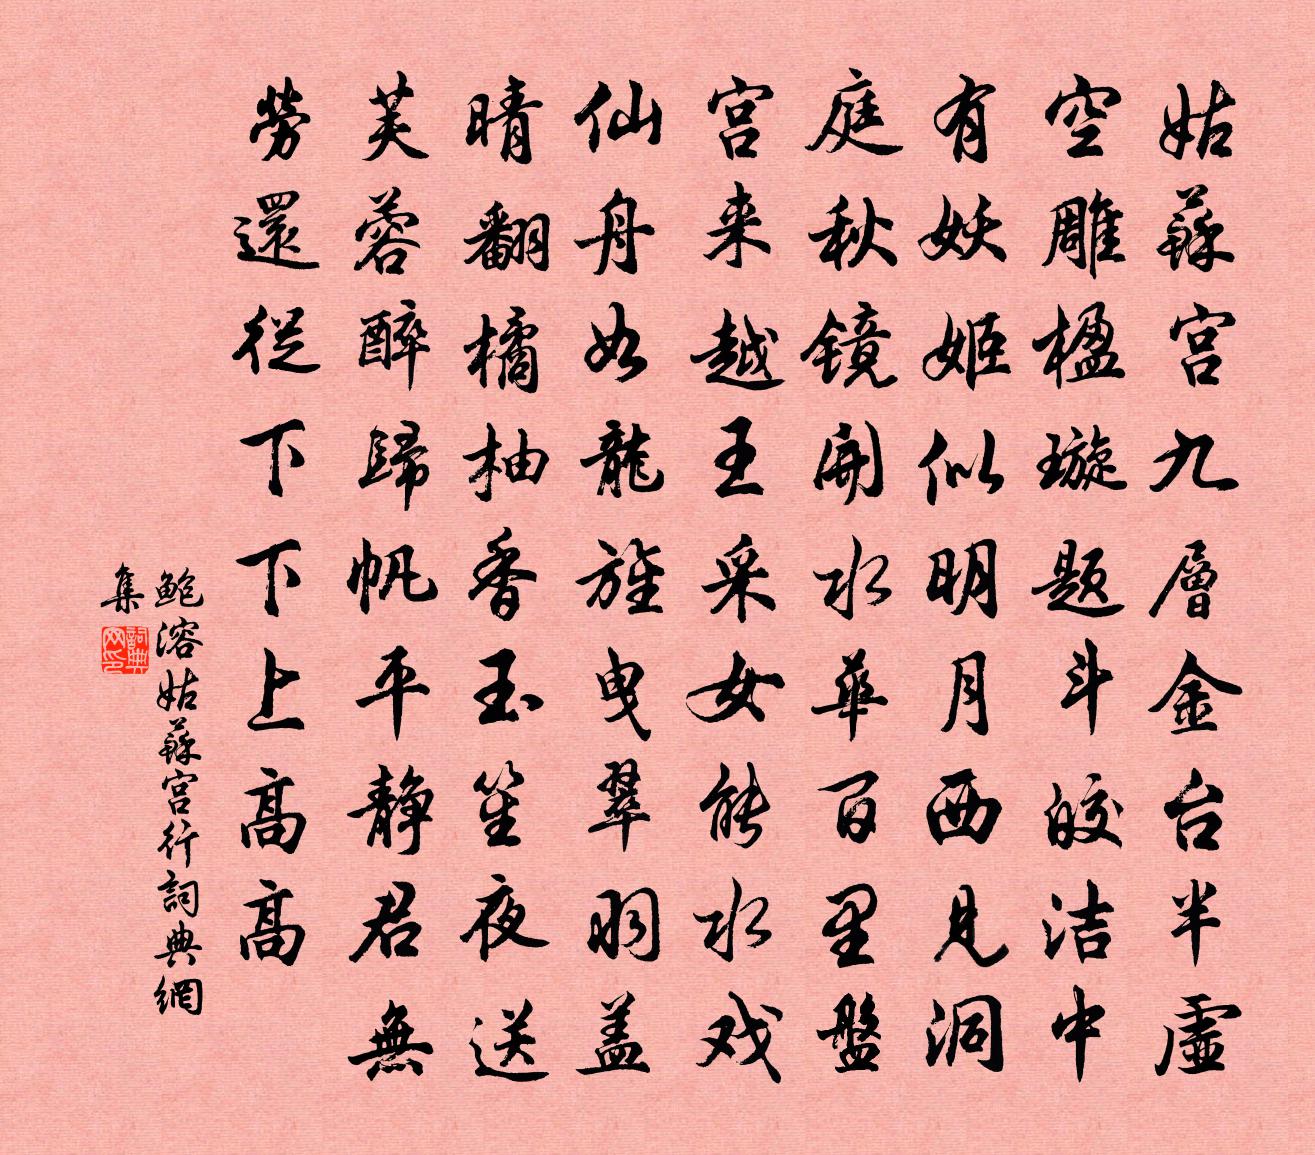 姑蘇宫九層金台半虛
空雕楹璇题斗皎洁中
有妖姬似明月西见洞
庭秋镜開水華百里盤
宫来越王采女能水戏
仙舟如龍旌曳翠羽盖
晴翻橘柚香玉笙夜送
芙蓉醉歸帆平静君無
勞還從下下上高高
鲍溶姑蘇宫行詞典網
集
詞典网印